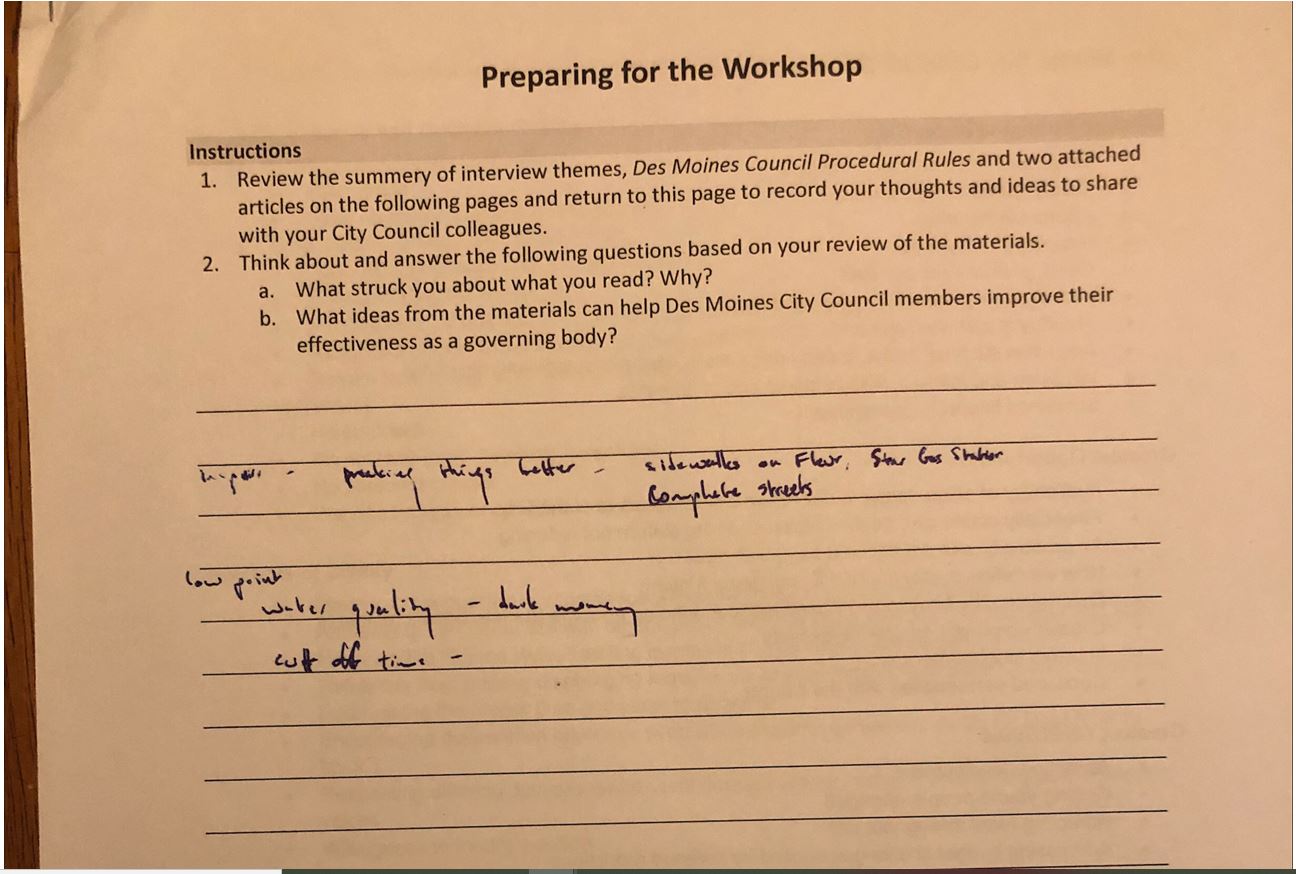 Preparing for the Workshop
Instructions
1. Review the summery of interview themes, Des Moines Council Procedural Rules and two attached
articles on the following pages and return to this page to record your thoughts and ideas to share
with your City Council colleagues.
2. Think about and answer the following questions based on your review of the materials.
a. What struck you about what you read? Why?
b. What ideas from the materials can help Des Moines City Council members improve their
effectiveness as a governing body?
- things better - sidewalks on Fleur, Star Gas Station
Complete streets
low point
water quality - dark money
cutt off time -